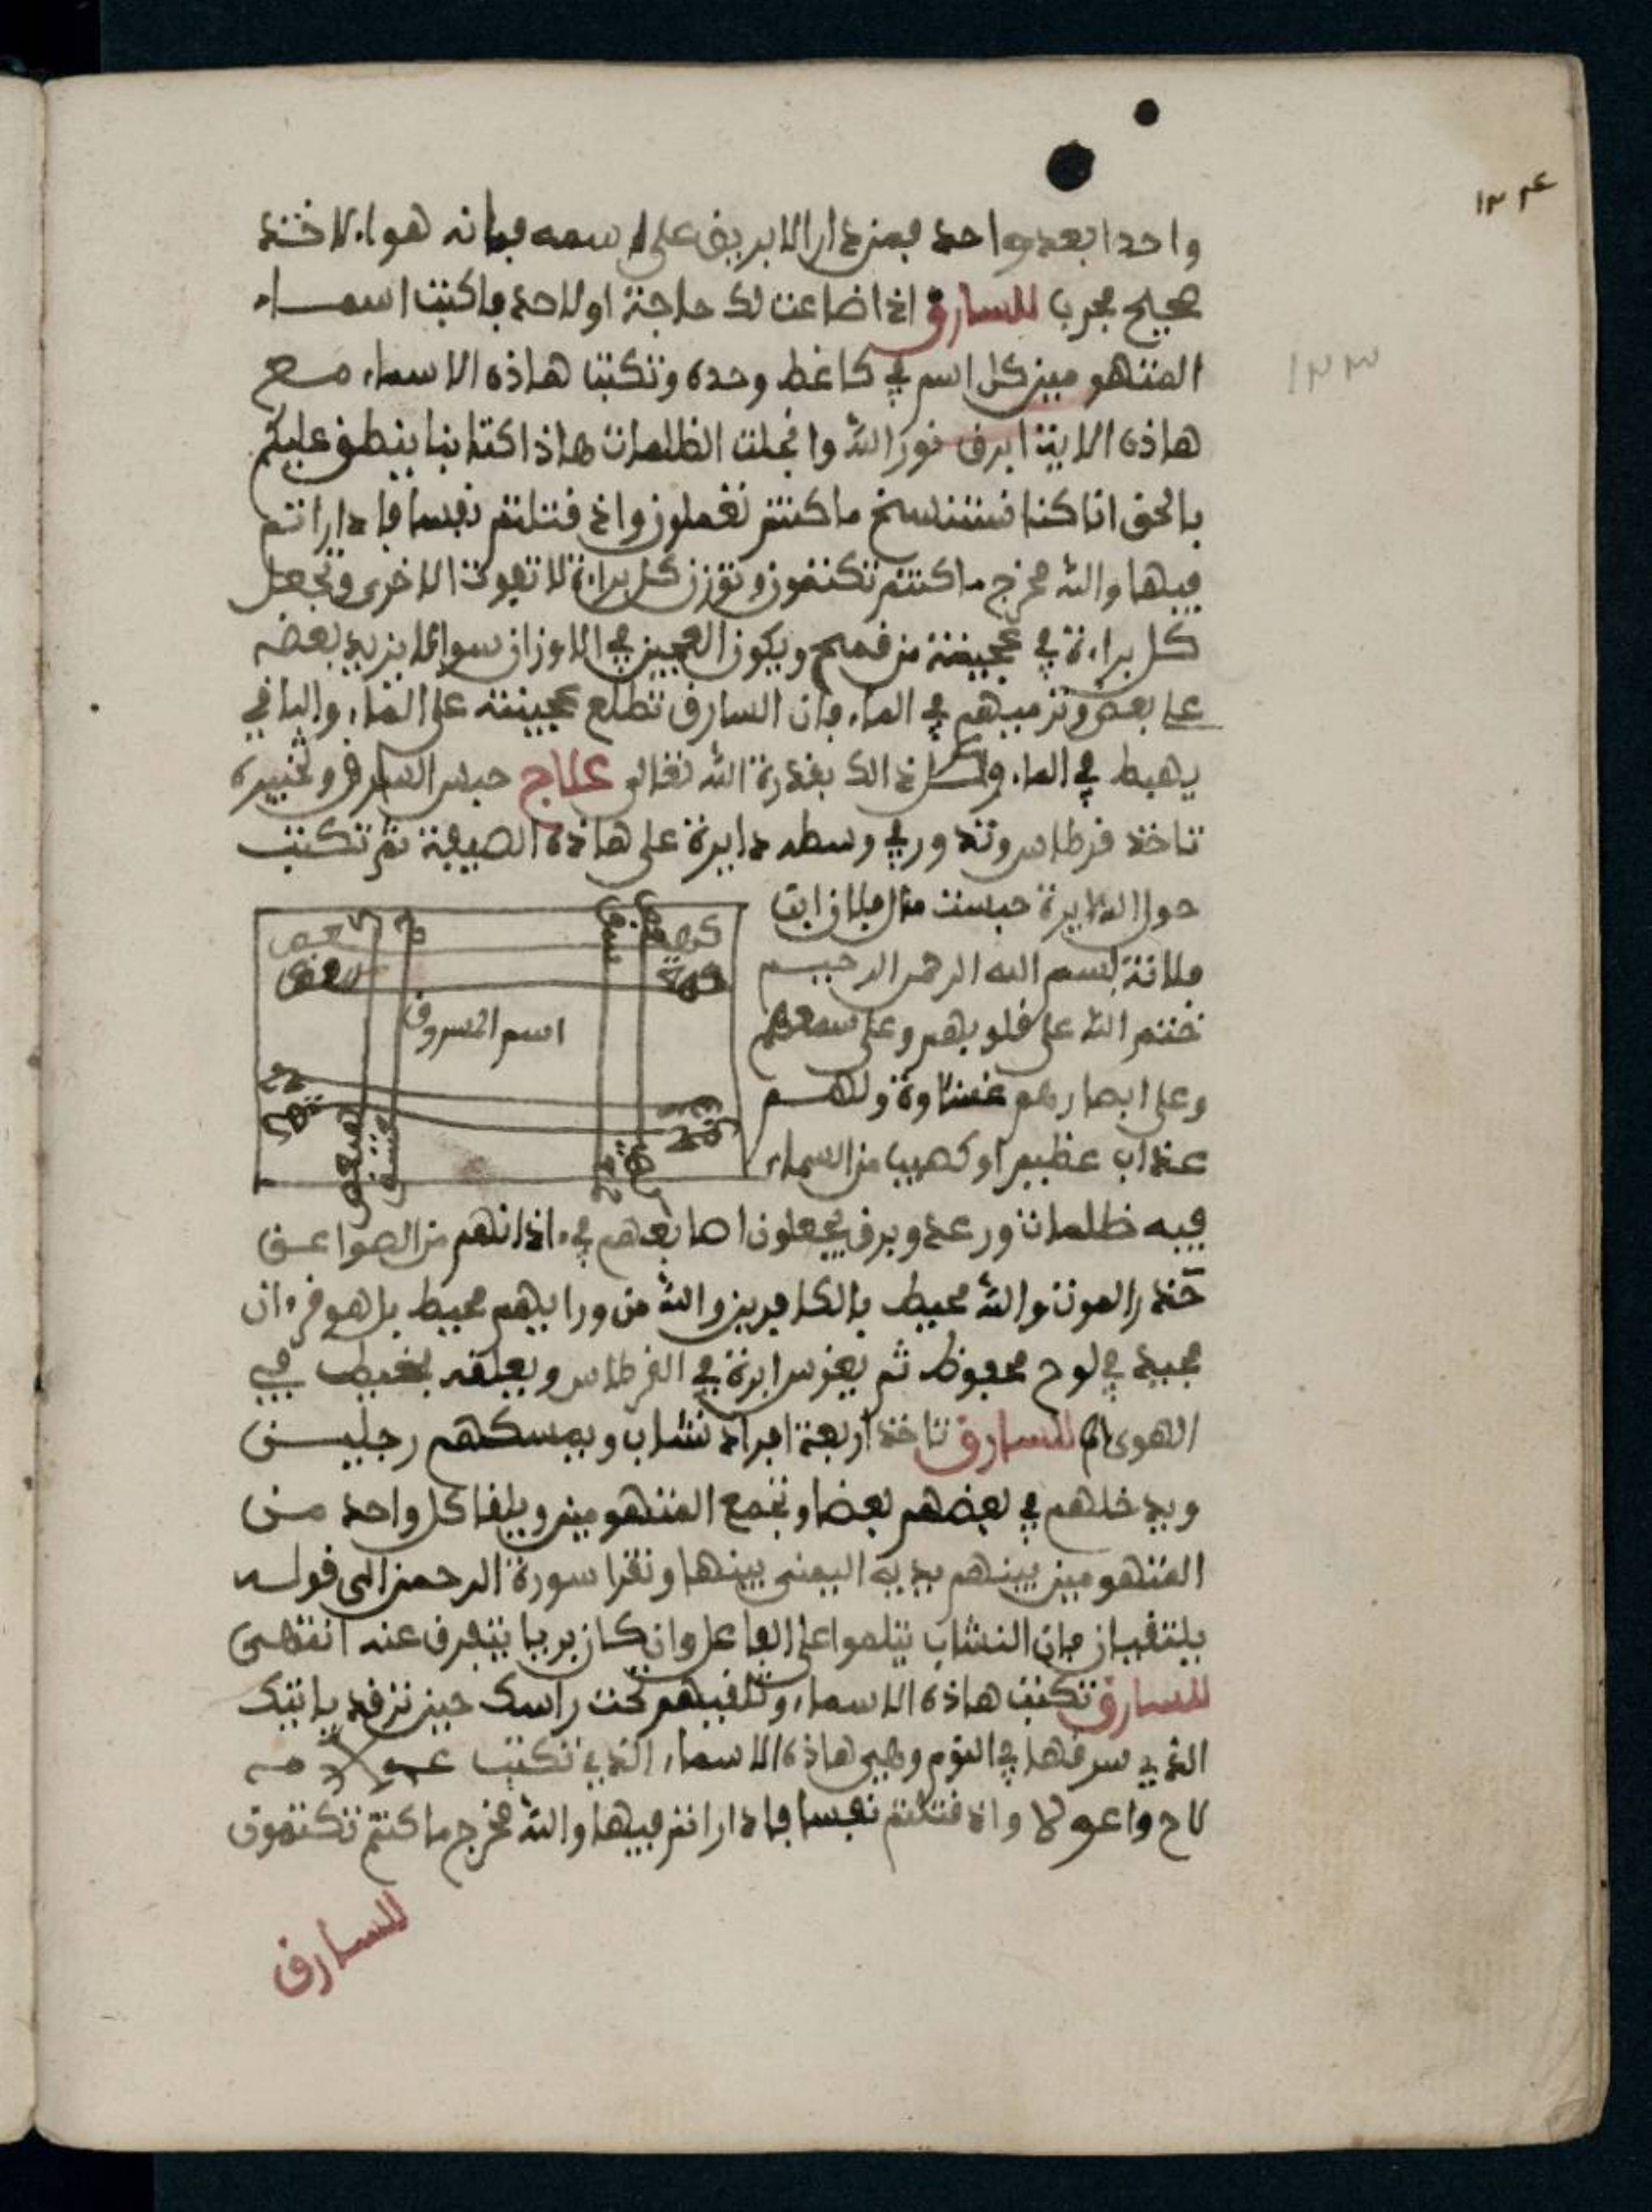 ١٣٤
واحدا بعد واحد فمن دار الابريق على اسمه فانه هواء لاخذ
صحيح مجرب للسارق اذا ضاعت لك حاجة او لاحد فاكتب اسماء
المتهومين كل اسم في كاغط وحده وتكتب هاذه الاسماء مع
١٣٣
هاذه الاية ابرق نور الله وانجلت الظلمات هاذا كتابنا ينطق عليكم
بالحق انا كنا نستنسخ ما كنتم تعملون واذ قتلتم نفسا فادارأتم
فيها والله مخرج ما كنتم تكتمون وتوزن كل براءة لا تفوت الاخرى وتجعل
كل براءة في عجينة من قمح ويكون العجين في الاوزان سوا لا يزيد بعضه
على بعض وترميهم في الماء فان السارق تطلع عجينته على الماء والباقي
يهبط في الماء وكل ذالك بقدرة الله تعالى علاج حبس السارق وتحييره
تاخذ قرطاس وتدور في وسطه دايرة على هاذه الصيفة ثم تكتب
حول الدايرة حبست مال فلان ابن
فلانة بسم الله الرحمن الرحيم
ختم الله على قلوبهم وعلى سمعهم
وعلى ابصارهم غشاوة ولهم
عذاب عظيم او كصيب من السماء
اسم المسروق
فيه ظلمات ورعد وبرق يجعلون اصابعهم في ءاذانهم من الصواعق
حذر الموت والله محيط بالكافرين والله من ورايهم محيط بل هو قرءان
مجيد في لوح محفوظ ثم يغرس ابرة في القرطاس ويعلقه بخيط في
الهوى للسارق تاخذ اربعة افراد نشاب ويمسكهم رجلين
ويدخلهم في بعضهم بعضا وتجمع المتهومين ويلقا كل واحد من
المتهومين بينهم يديه اليمنى بينها وتقرا سورة الرحمن الى قوله
يلتقيان فان النشاب يتلموا على الفاعل وان كان بريا يتفرق عنه انتهى
للسارق تكتب هاذه الاسماء وتلقيهم تحت راسك حين ترقد ياتيك
الذي سرقها في النوم وهي هاذه الاسماء الذي تكتب
واذ قتلتم نفسا فادارأتم فيها والله مخرج ما كنتم تكتمون
للسارق